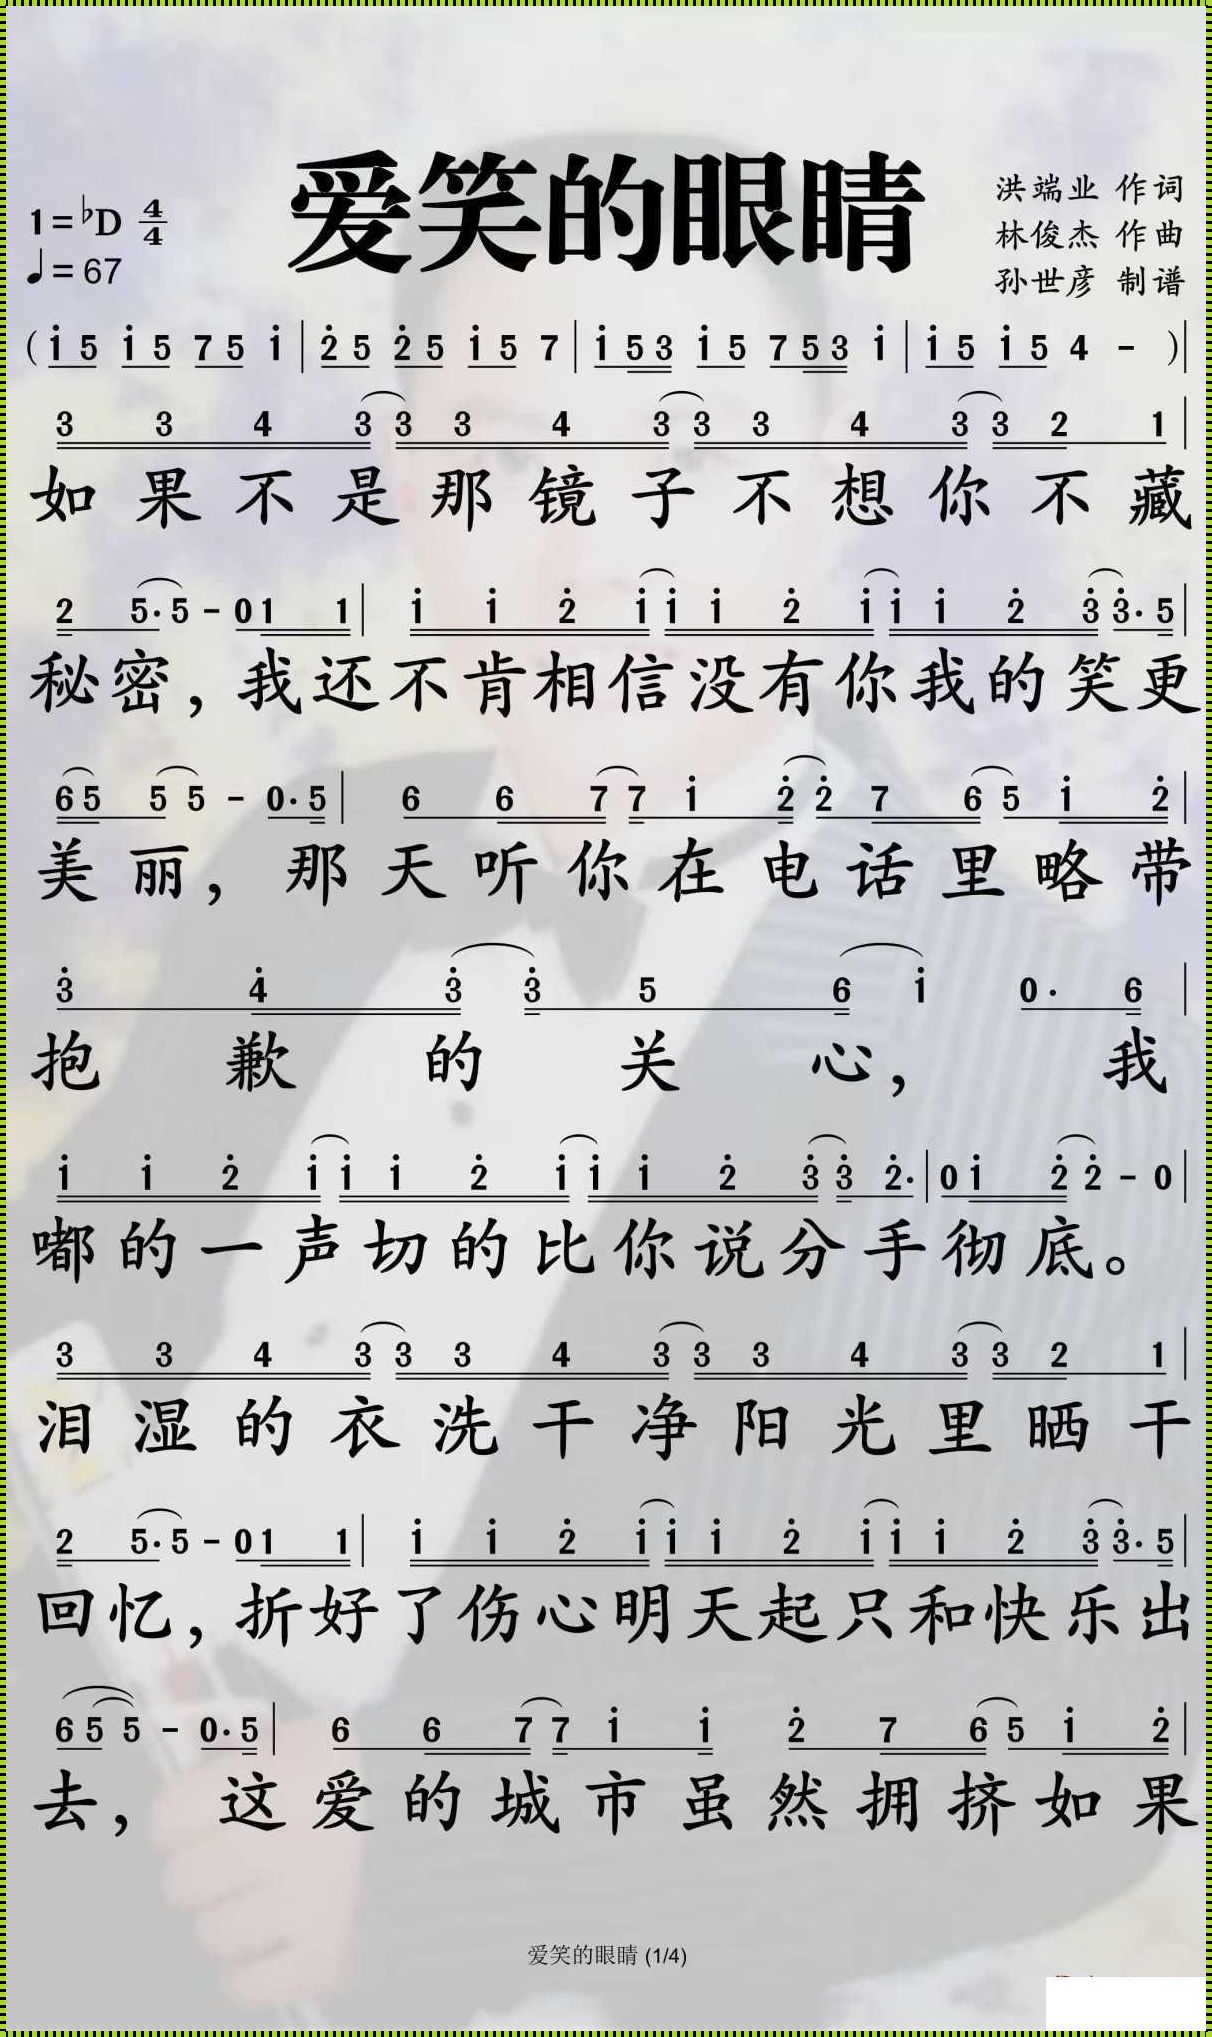 爱笑的眼睛
1=♭D 4/4
♩=67
洪端业 作词
林俊杰 作曲
孙世彦 制谱
( i 5 i 5 7 5 i | 2̇ 5 2̇ 5 i 5 7 | i 5 3 i 5 7 5 3 i | i 5 i 5 4 - ) |
3 3 4 3 3 3 4 3 3 3 4 3 3 2 1 |
如果不是那镜子不想你不藏
2 5· 5 - 0 1 1 | i i 2̇ i i i 2̇ i i i 2̇ 3̇ 3̇· 5 |
秘密，我还不肯相信没有你我的笑更
6 5 5 5 - 0· 5 | 6 6 7 7 i 2̇ 2̇ 7 6 5 i 2̇ |
美丽，那天听你在电话里略带
3̇ 4̇ 3̇ 3̇ 5 6 i 0· 6 |
抱歉的关心，我
i i 2̇ i i i 2̇ i i i 2̇ 3̇ 3̇ 2̇· | 0 i 2̇ 2̇ - 0 |
嘟的一声切的比你说分手彻底。
3 3 4 3 3 3 4 3 3 3 4 3 3 2 1 |
泪湿的衣洗干净阳光里晒干
2 5· 5 - 0 1 1 | i i 2̇ i i i 2̇ i i i 2̇ 3̇ 3̇· 5 |
回忆，折好了伤心明天起只和快乐出
6 5 5 - 0· 5 | 6 6 7 7 i i 2̇ 7 6 5 i 2̇ |
去，这爱的城市虽然拥挤如果
爱笑的眼睛 (1/4)